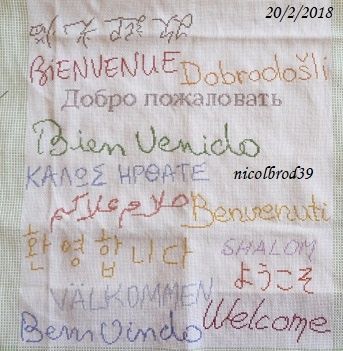 20/2/2018
BiENVENUE Dobrodošli
Добро пожаловать
Bien Venido
ΚΑΛΩΣ ΗΡΘΑΤΕ
nicolbrod39
Benvenuti
환영합니다
SHALOM
ようこそ
VÄLKOMMEN
Welcome
Bem Vindo